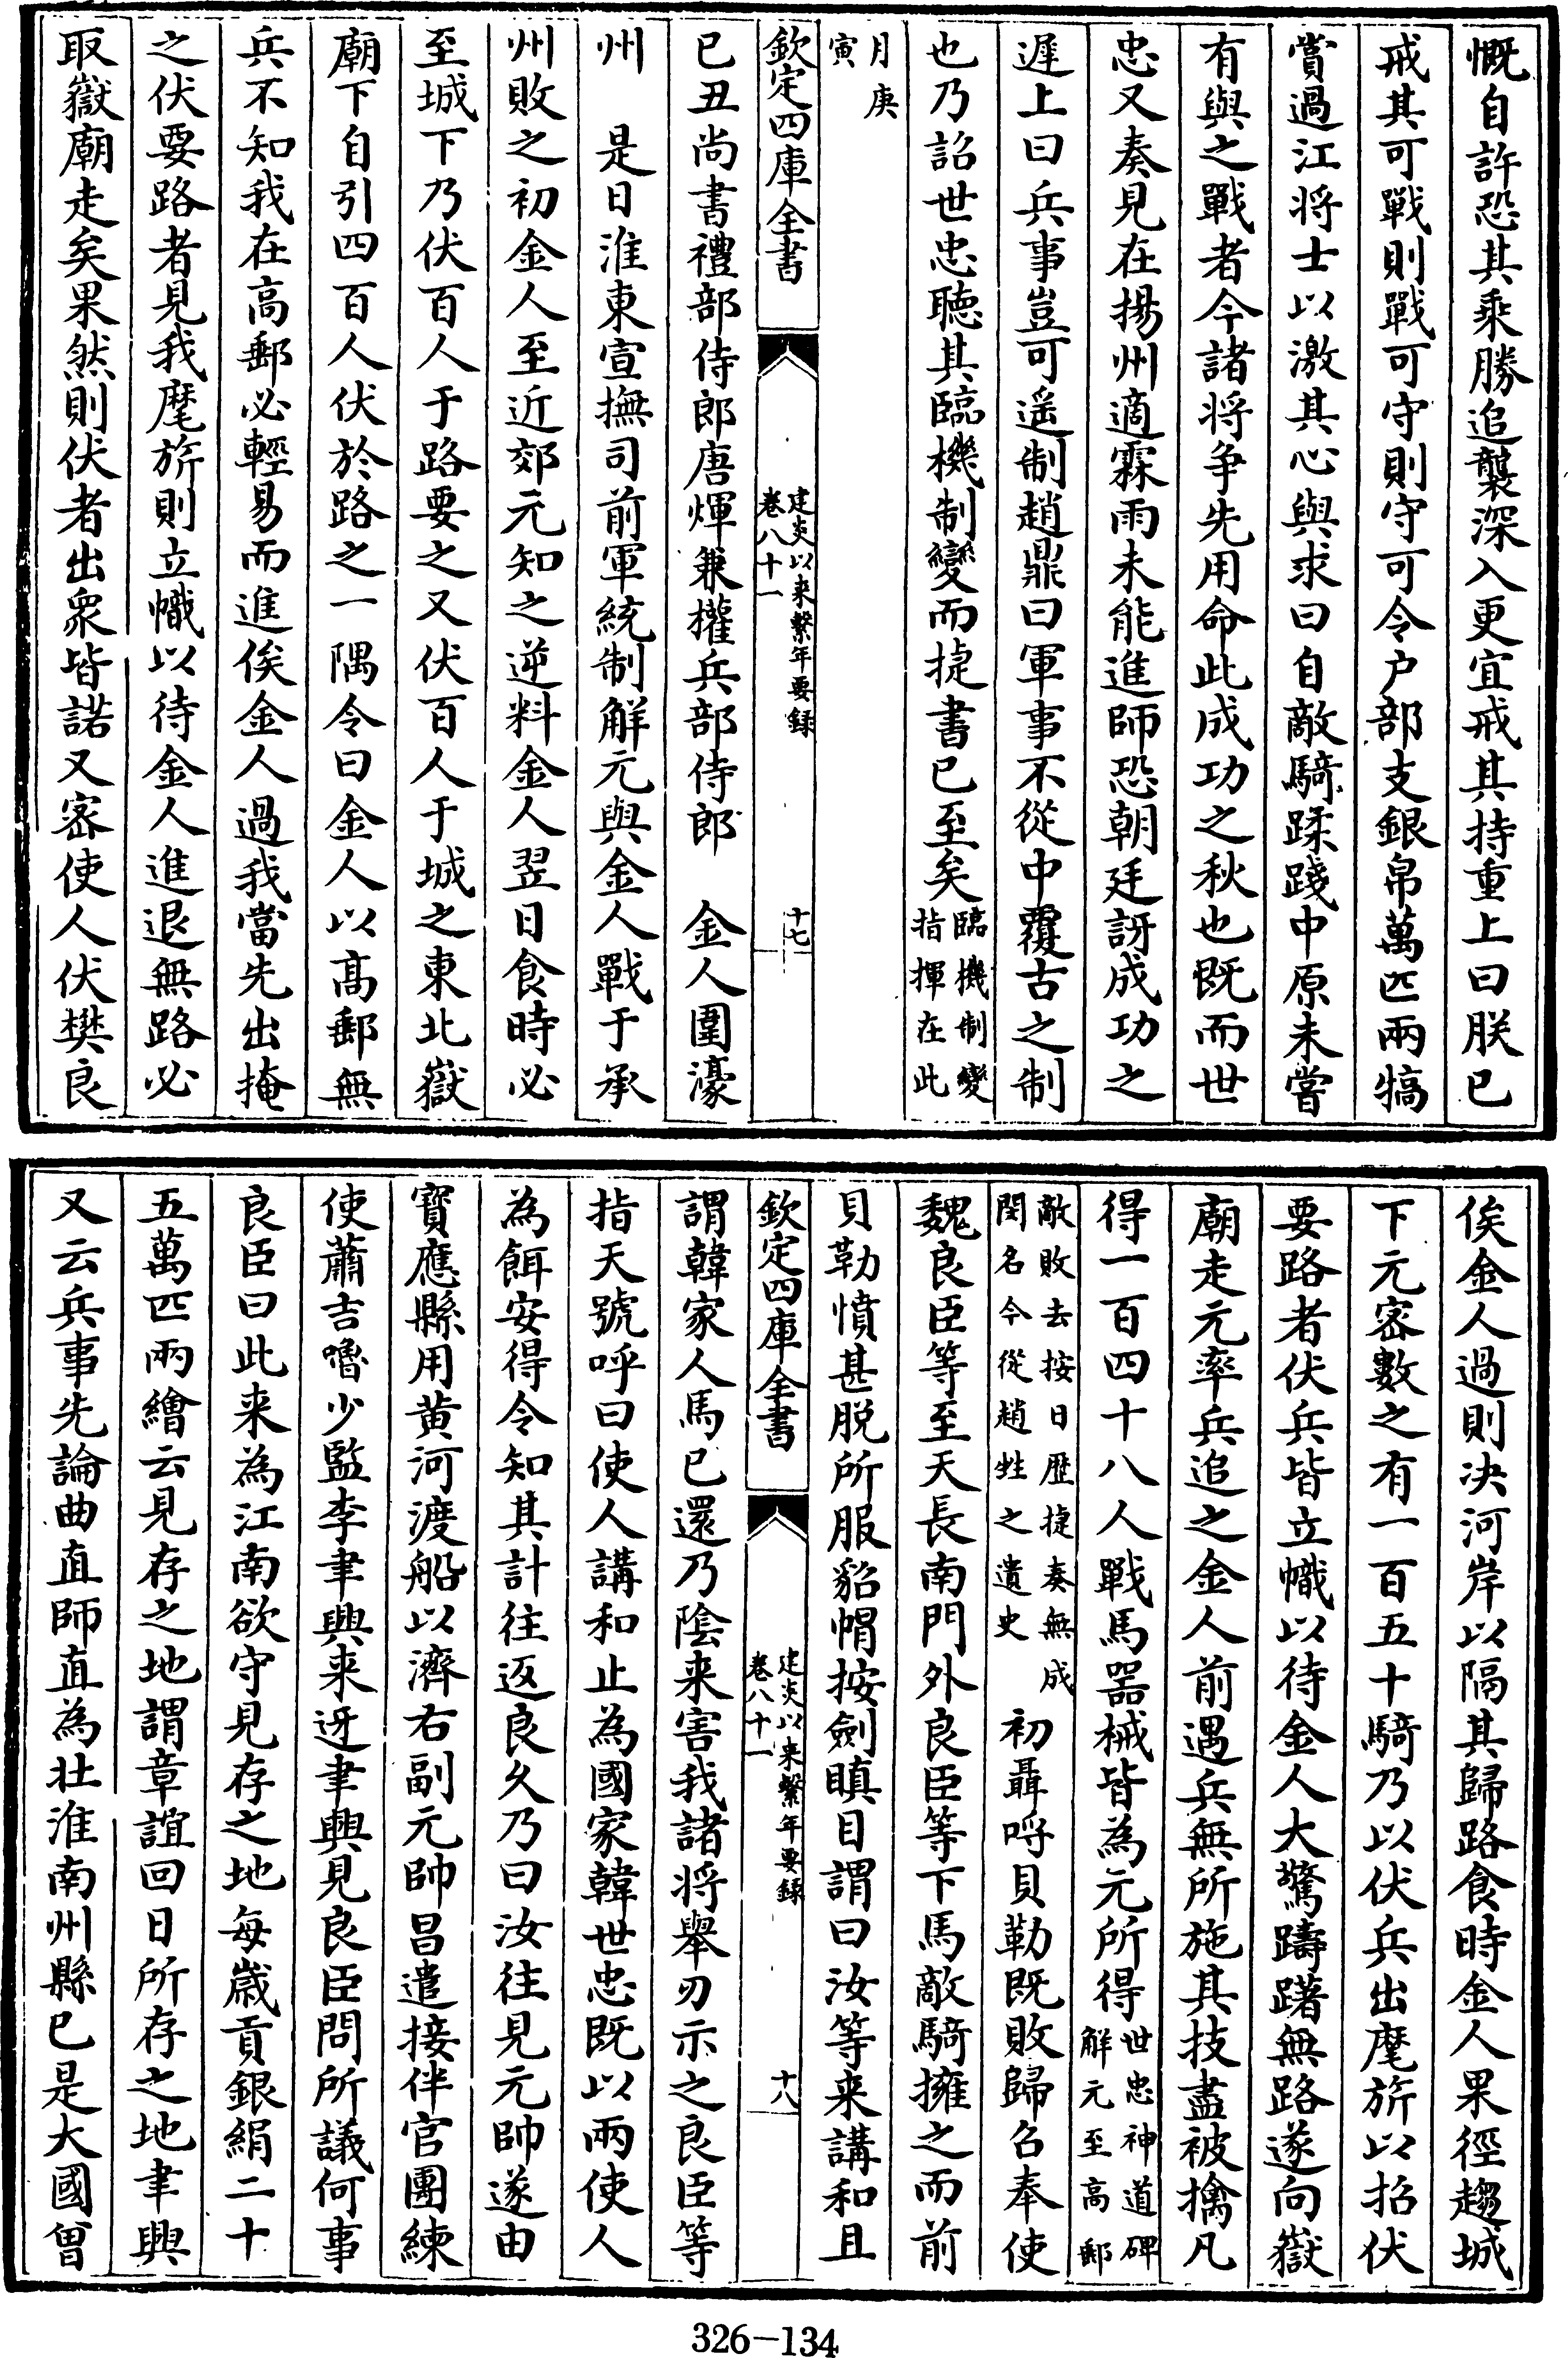 慨自許恐其乘勝追襲深入更宜戒其持重上曰朕已
戒其可戰則戰可守則守可令户部支銀帛萬匹兩犒
賞過江将士以激其心與求曰自敵騎蹂踐中原未嘗
有與之戰者今諸将争先用命此成功之秋也既而世
忠又奏見在揚州適霖雨未能進師恐朝廷訝成功之
遲上曰兵事豈可遥制趙鼎曰軍事不從中覆古之制
也乃詔世忠聽其臨機制變而捷書已至矣臨機制變指揮在此
月庚寅
欽定四庫全書
建炎以来繫年要録
卷八十一
十七
已丑尚書禮部侍郎唐煇兼權兵部侍郎　金人圍濠
州　是日淮東宣撫司前軍統制解元與金人戰于承
州敗之初金人至近郊元知之逆料金人翌日食時必
至城下乃伏百人于路要之又伏百人于城之東北嶽
廟下自引四百人伏於路之一隅令曰金人以高郵無
兵不知我在高郵必輕易而進俟金人過我當先出掩
之伏要路者見我麾旂則立幟以待金人進退無路必
取嶽廟走矣果然則伏者出衆皆諾又密使人伏樊良
俟金人過則决河岸以隔其歸路食時金人果徑趨城
下元密數之有一百五十騎乃以伏兵出麾旂以招伏
要路者伏兵皆立幟以待金人大驚躊躇無路遂向嶽
廟走元率兵追之金人前遇兵無所施其技盡被擒凡
得一百四十八人戰馬器械皆為元所得世忠神道碑解元至高郵
敵敗去按日歷捷奏無成閔名今從趙甡之遺史　初聶呼貝勒既敗歸召奉使
魏良臣等至天長南門外良臣等下馬敵騎擁之而前
貝勒憤甚脱所服貂帽按劍瞋目謂曰汝等来講和且
欽定四庫全書
建炎以来繫年要録
卷八十一
十八
謂韓家人馬已還乃陰来害我諸将舉刃示之良臣等
指天號呼曰使人講和止為國家韓世忠既以兩使人
為餌安得令知其計往返良久乃曰汝往見元帥遂由
寳應縣用黄河渡船以濟右副元帥昌遣接伴官團練
使蕭吉嚕少監李聿興来迓聿興見良臣問所議何事
良臣曰此来為江南欲守見存之地每歲貢銀絹二十
五萬匹兩繪云見存之地謂章誼回日所存之地聿興
又云兵事先論曲直師直為壯淮南州縣已是大國曾
326-134